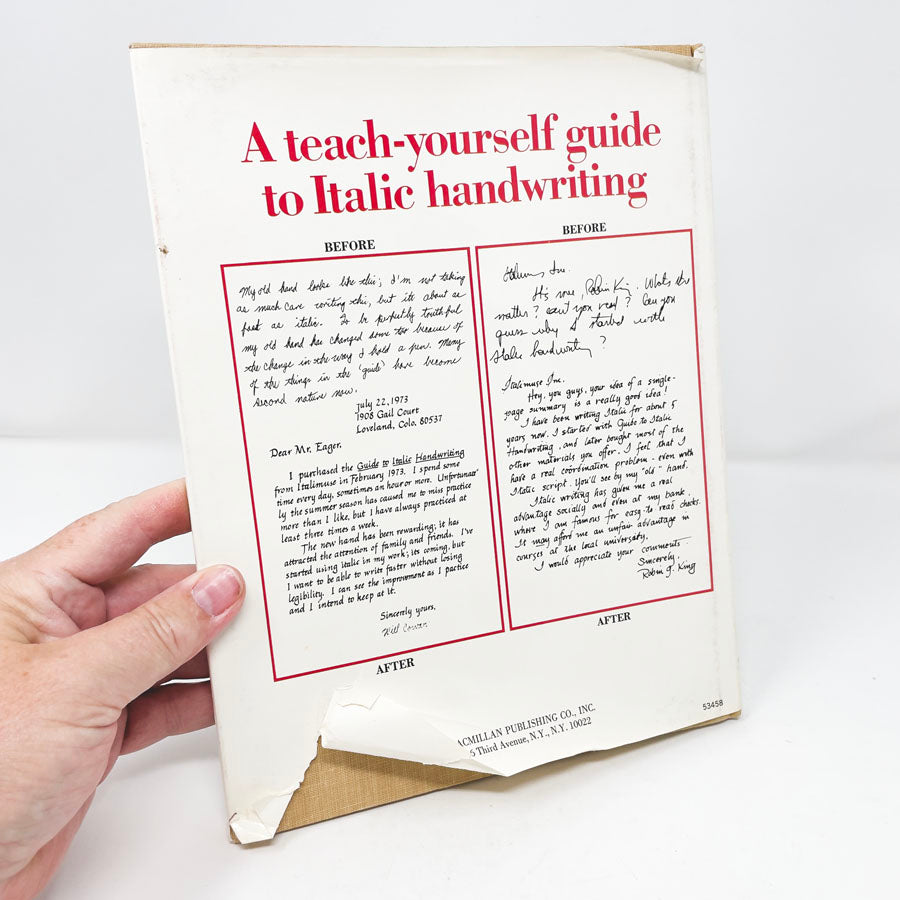 A teach-yourself guide
to Italic handwriting
BEFORE
My old hand looks like this; I'm not taking
as much care writing this, but its about as
fast as italic. To be perfectly truthful
my old hand has changed some too because of
the change in the way I hold a pen. Many
of the things in the 'guide' have become
second nature now.
July 22, 1973
1908 Gail Court
Loveland, Colo. 80537
Dear Mr. Eager,
I purchased the Guide to Italic Handwriting
from Italimuse in February 1973. I spend some
time every day, sometimes an hour or more. Unfortunate
ly the summer season has caused me to miss practice
more than I like, but I have always practiced at
least three times a week.
The new hand has been rewarding; it has
attracted the attention of family and friends. I've
started using Italic in my work; its coming, but
I want to be able to write faster without losing
legibility. I can see the improvement as I pactice
and I intend to keep at it.
Sincerely yours,
Will Cowen
AFTER
BEFORE
Inc.
His me, Robin King. Whats the
matter? can't you read? Can you
guess why I started with
Italic handwriting?
Italimuse Inc.
Hey, you guys, your idea of a single-
page summary is a really good idea!
I have been writing Italic for about 5
years now. I started with Guide to Italic
Handwriting, and later bought most of the
other materials you offer. I feel that I
have a real coordination problem - even with
Italic script. You'll see by my "old" hand.
Italic writing has given me a real
advantage socially and even at my bank,
where I am famous for easy-to read checks.
It may afford me an unfair advantage in
courses at the local university.
I would appreciate your comments.
Sincerely,
Robin J. King
AFTER
ACMILLAN PUBLISHING CO., INC.
Third Avenue, N.Y., N.Y. 10022
53458